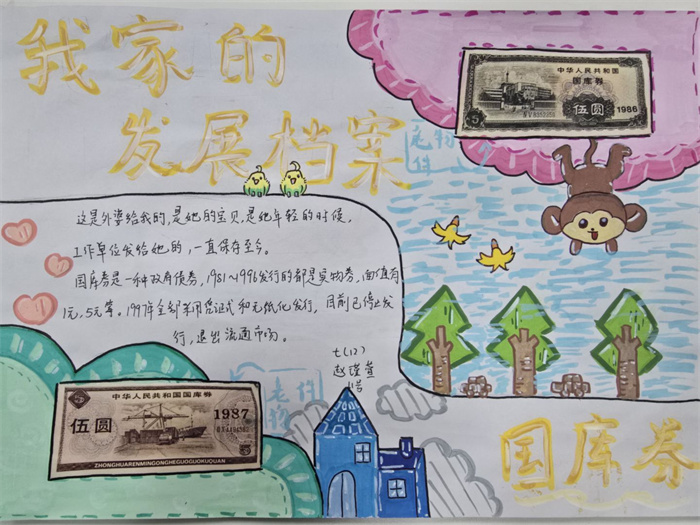 我家的
发展档案
中华人民共和国
国库券
伍圆
1986
老物件
这是外婆给我的,是她的宝贝,是她年轻的时候,
工作单位发给她的,一直保存至今。
国库券是一种政府债券,1981~1996发行的都是实物券,面值有
1元,5元等。1997年全部采用凭证式和无纸化发行,目前已停止发
行,退出流通市场。
七(12)
赵瑾萱
11号
老物件
中华人民共和国国库券
伍圆
1987
ZHONGHUARENMINGONGHEGUOGUOKUQUAN
国库券